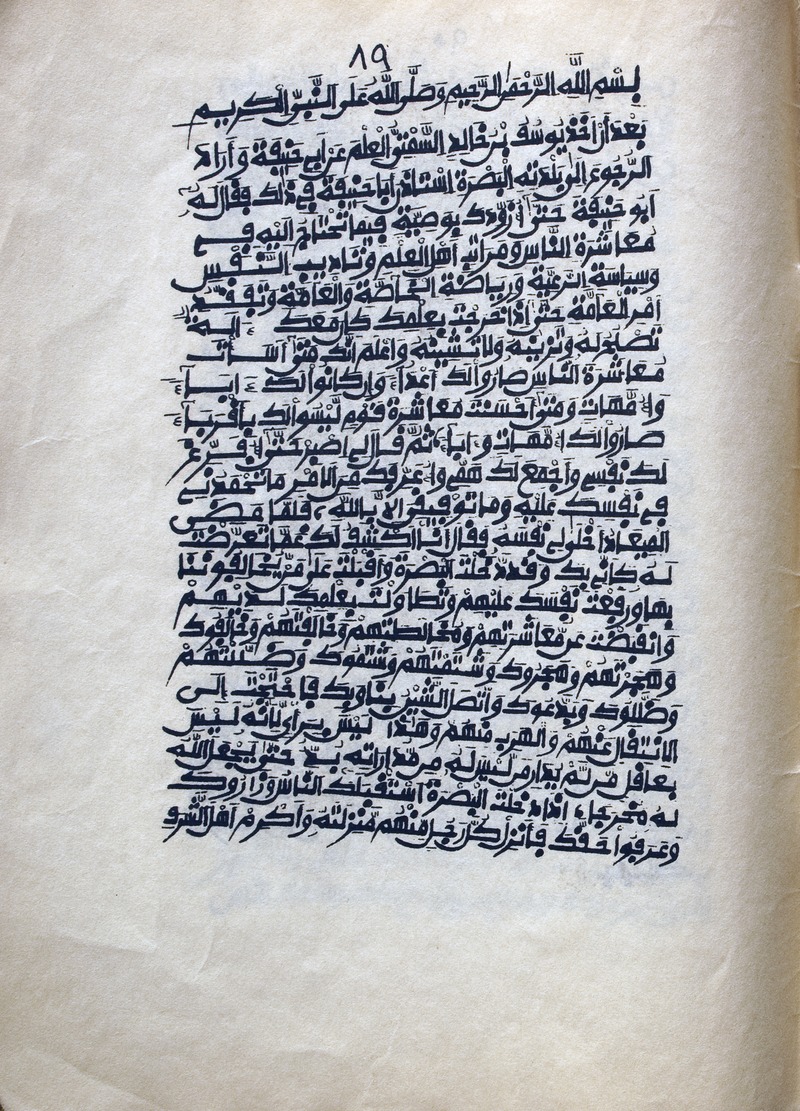 ٨٩
بسم الله الرحمن الرحيم وصلى الله على النبي الكريم
بعد أن أخذ يوسف بن خالد السمتي العلم عن أبي حنيفة وأراد
الرجوع إلى بلدته البصرة استأذن أبا حنيفة في ذلك فقال له
أبو حنيفة حتى أزودك بوصية فيما تحتاج إليه في
معاشرة الناس ومراتب أهل العلم وتأديب النفس
وسياسة الرعية ورياضة الخاصة والعامة وتفقد
أمر العامة حتى إذا خرجت بعلمك كان معك آلة
تصلح له وتزينه ولا تشينه واعلم أنك متى أسأت
معاشرة الناس صاروا لك أعداء وإن كانوا لك ءاباء
وأمهات ومتى أحسنت معاشرة قوم ليسوا لك بأقرباء
صاروا لك أمهات وءاباء ثم قال لي اصبر حتى أفرغ
لك نفسي وأجمع لك همي وأعرفك من الأمر ما تحمدني
في نفسك عليه وما توفيقي إلا بالله فلما مضى
الميعاد أخلى لي نفسه فقال أنا أكشف لك عما تعرضت
له كأني بك وقد دخلت البصرة وأقبلت على من يخالفوننا
بها ورفعت نفسك عليهم وتطاولت بعلمك لديهم
وانقبضت عن معاشرتهم ومخالطتهم وخالفتهم وخالفوك
وهجرتهم وهجروك وشتمتهم وشتموك وضللتهم
وضللوك وبدعوك واتصل الشين بنا وبك فاحتجت إلى
الانتقال عنهم والهرب منهم وهذا ليس برأي بأنه ليس
بعاقل من لم يدار من ليس له من مداراته بد حتى يجعل الله
له مخرجا، إذا دخلت البصرة استقبلك الناس وزاروك
وعرفوا حقك فأنزل كل رجل منهم منزلته وأكرم أهل الشرف